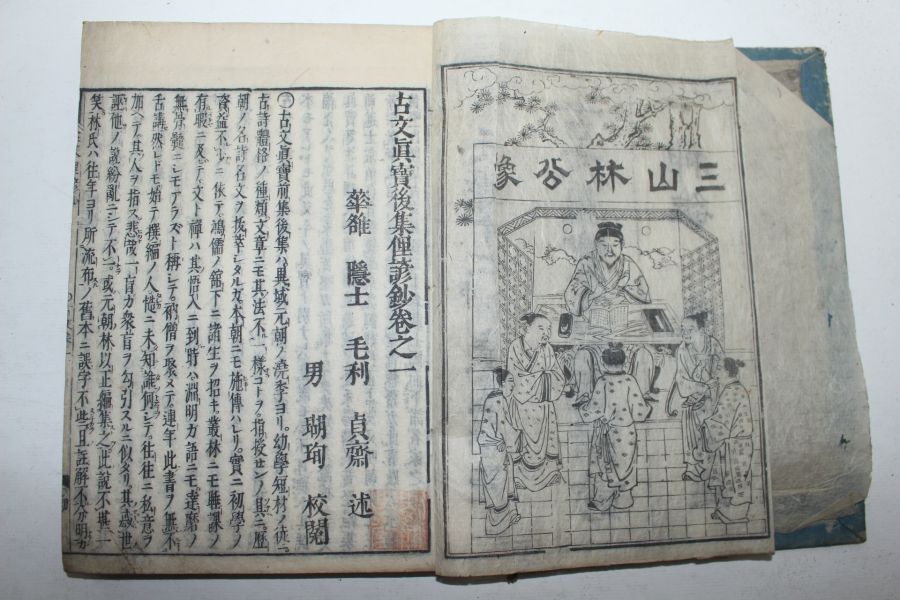 三山林公像
古文眞寶後集俚諺鈔卷之一
隱士 毛利 貞齋 述
男 瑚珣 校閲
〇古文眞寶前集後集ハ異域元朝ノ澆季ヨリ。幼學短材ノ徒
古詩體格ノ種類文章ニモ其法不一樣コトヲ。指授センノ具ニ。歷
朝ノ名詩名文ヲ抜萃シタルガ本朝ニモ施傳ハレリ。實ニ初學ノ
資益不少ニ依テ。鴻儒ノ舘下ニ諸生ヲ招キ。叢林ニモ聽課ノ
有暇ニ及テ。文ト禪ハ其悟入ニ到時ハ淵明カ語ニモ。達磨ノ
無骨髓ニシモアラスト稱シテ。衲僧ヲ聚メテ連年此書ヲ無不
舌講。然レトモ始テ撰編ノ人慥ニ未知誰何シテ。往往ニ私意ヲ
加ヘテ其人ヲ指ス悲哉一盲カ衆盲ヲ勾引スルニ似タリ。其或世
誣他ノ說紛亂ニシテ不一。或元朝林以正編集之此說不無一
矣林氏ハ往年ヨリ所流布ノ舊本ニ誤字不些且註解不分明カ